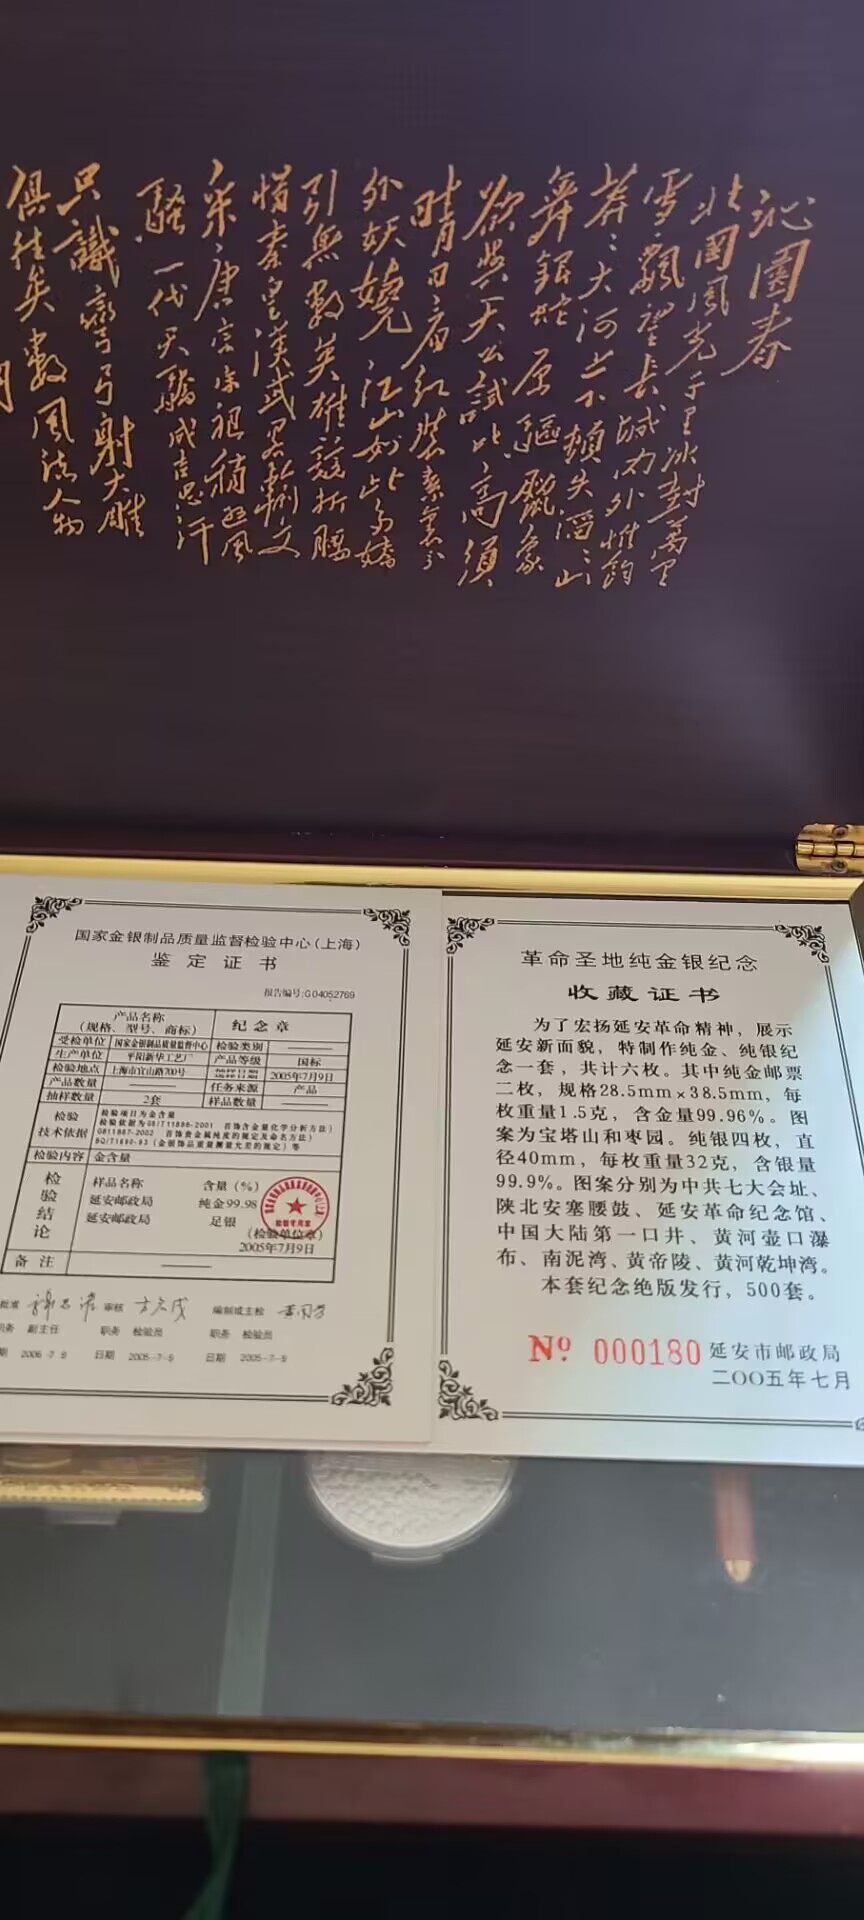 沁园春
北国风光千里冰封万里
雪飘望长城内外惟余
莽莽大河上下顿失滔滔山
舞银蛇原驱腊象
欲与天公试比高须
晴日看红装素裹分
外妖娆江山如此多娇
引无数英雄竞折腰
惜秦皇汉武略输文
采唐宗宋祖稍逊风
骚一代天骄成吉思汗
只識弯弓射大雕
俱往矣数风流人物
国家金银制品质量监督检验中心(上海)
鉴定证书
报告编号:G04052769
产品名称
(规格、型号、商标) 纪念章
受检单位 国家金银制品质量监督中心 检验类别 ———
生产单位 平阳新华工艺厂 产品等级 国标
检验地点 上海市宜山路700号 抽样日期 2005年7月9日
产品数量 ——— 任务来源 产品
抽样数量 2套 样品数量 ———
检验 检验项目为金含量
技术依据 检验依据为GB/T11886-2001 首饰含金量化学分析方法)
GB11887-2002 首饰贵金属纯度的规定及命名方法)
BQ/T1690-93 (金银饰品质量测量允差的规定) 等
检验内容 金含量
检验结论
样品名称 含量(%)
延安邮政局 纯金99.98
延安邮政局 足银
(检验单位章)
2005年7月9日
备注 ———
批准 审核 编制或主检
职务 副主任 职务 检验员 职务 检验员
期 2005-7-9 日期 2005-7-9 日期 2005-7-9
革命圣地纯金银纪念
收藏证书
为了宏扬延安革命精神，展示
延安新面貌，特制作纯金、纯银纪
念一套，共计六枚。其中纯金邮票
二枚，规格28.5mm×38.5mm，每
枚重量1.5克，含金量99.96%。图
案为宝塔山和枣园。纯银四枚，直
径40mm，每枚重量32克，含银量
99.9%。图案分别为中共七大会址、
陕北安塞腰鼓、延安革命纪念馆、
中国大陆第一口井、黄河壶口瀑
布、南泥湾、黄帝陵、黄河乾坤湾。
本套纪念绝版发行，500套。
Nº 000180 延安市邮政局
二〇〇五年七月